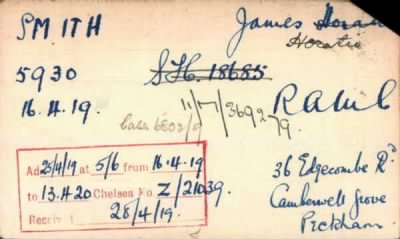 SMITH James Horatio
Horatio
5930 S.H. 18685
16.4.19. 11/7/369279 RAMC
base 6802/9
Ad 25/4/19 at 5/6 from 16.4.19
to 13.4.20 Chelsea No. Z/21039.
Received 28/4/19.
36 Edgecombe Rd
Camberwell Grove
Peckham.